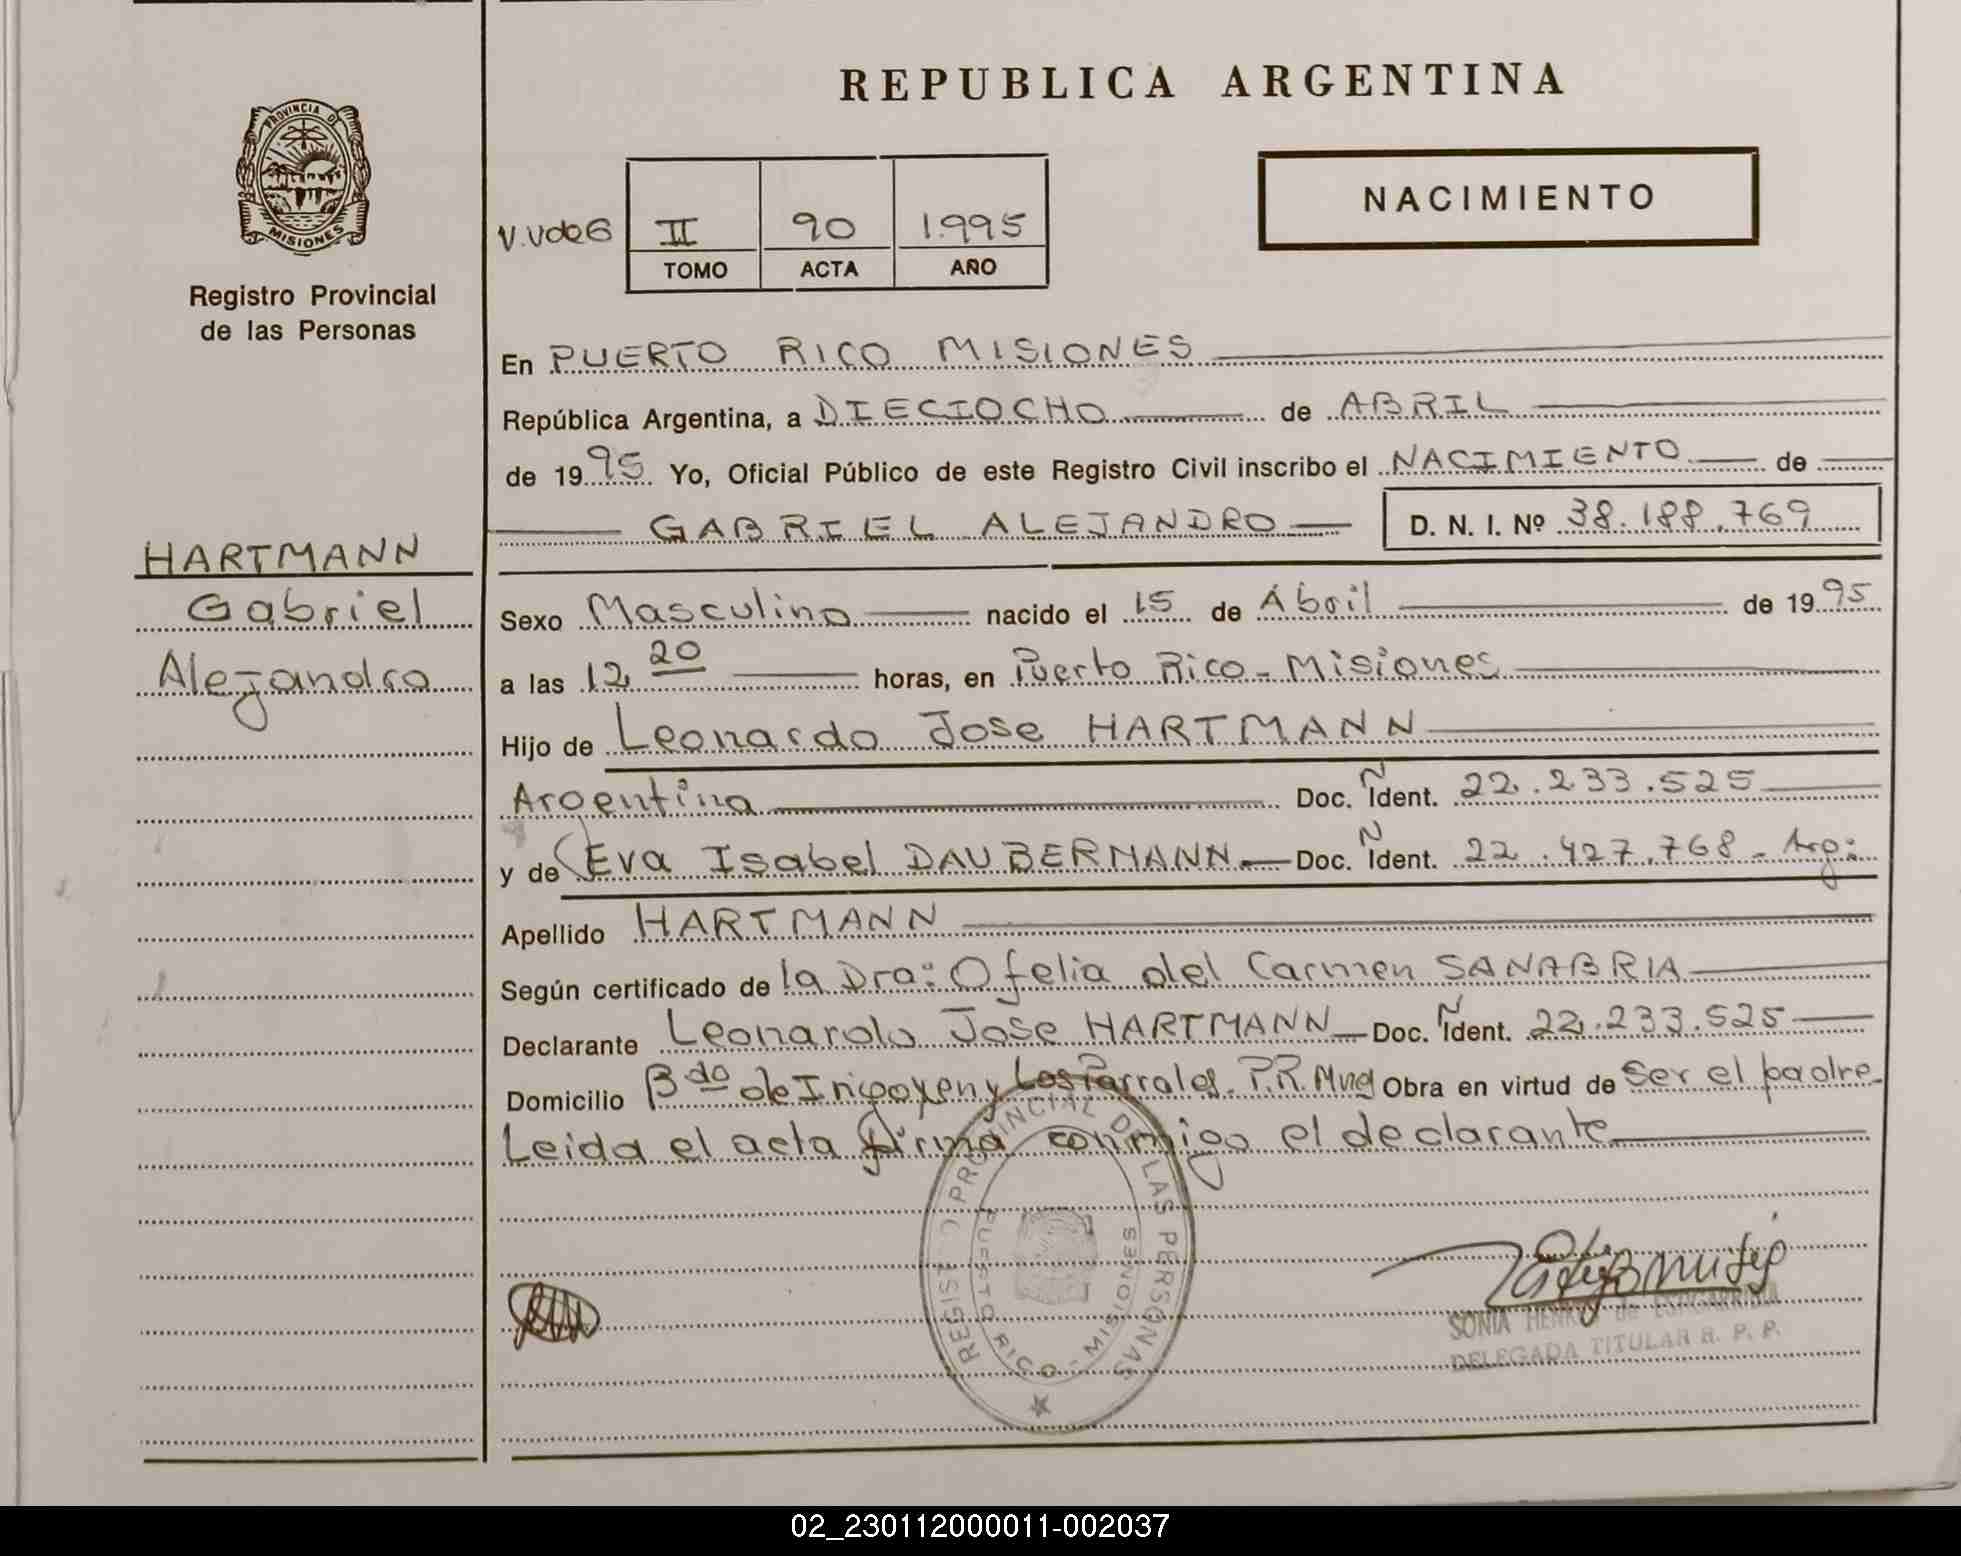 REPUBLICA ARGENTINA
PROVINCIA DE
MISIONES
Registro Provincial
de las Personas
NACIMIENTO
II 90 1.995
TOMO ACTA AÑO
En PUERTO RICO MISIONES
República Argentina, a DIECIOCHO de ABRIL
de 1995 Yo, Oficial Público de este Registro Civil inscribo el NACIMIENTO de
GABRIEL ALEJANDRO D. N. I. Nº 38.188.769
HARTMANN
Gabriel
Alejandro
Sexo Masculino nacido el 15 de Abril de 1995
a las 12 20 horas, en Puerto Rico - Misiones
Hijo de Leonardo Jose HARTMANN
Argentina Doc. Ñ Ident. 22.233.525
y de Eva Isabel DAUBERMANN Doc. Ñ Ident. 22.427.768 - Arg:
Apellido HARTMANN
Según certificado de la Dra: Ofelia del Carmen SANABRIA
Declarante Leonardo Jose HARTMANN Doc. Ñ Ident. 22.233.525
Domicilio Bdo de Irigoyen y Los Parrales. P.R. Mnes Obra en virtud de Ser el padre
Leida el acta firma conmigo el declarante
REGISTRO PROVINCIAL DE LAS PERSONAS
PUERTO RICO - MISIONES
SONIA de
DELEGADA TITULAR R. P. P.
02_230112000011-002037